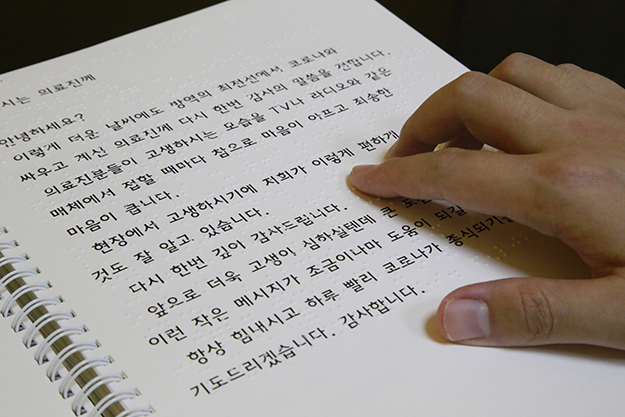 시는 의료진께
안녕하세요?
이렇게 더운 날씨에도 방역의 최전선에서 코로나와
싸우고 계신 의료진께 다시 한번 감사의 말씀을 전합니다.
의료진분들이 고생하시는 모습을 TV나 라디오와 같은
매체에서 접할 때마다 참으로 마음이 아프고 죄송한
마음이 큽니다.
현장에서 고생하시기에 저희가 이렇게 편하게
것도 잘 알고 있습니다.
다시 한번 깊이 감사드립니다.
앞으로 더욱 고생이 심하실텐데 큰
이런 작은 메시지가 조금이나마 도움이 되길
항상 힘내시고 하루 빨리 코로나가 종식되기를
기도드리겠습니다. 감사합니다.